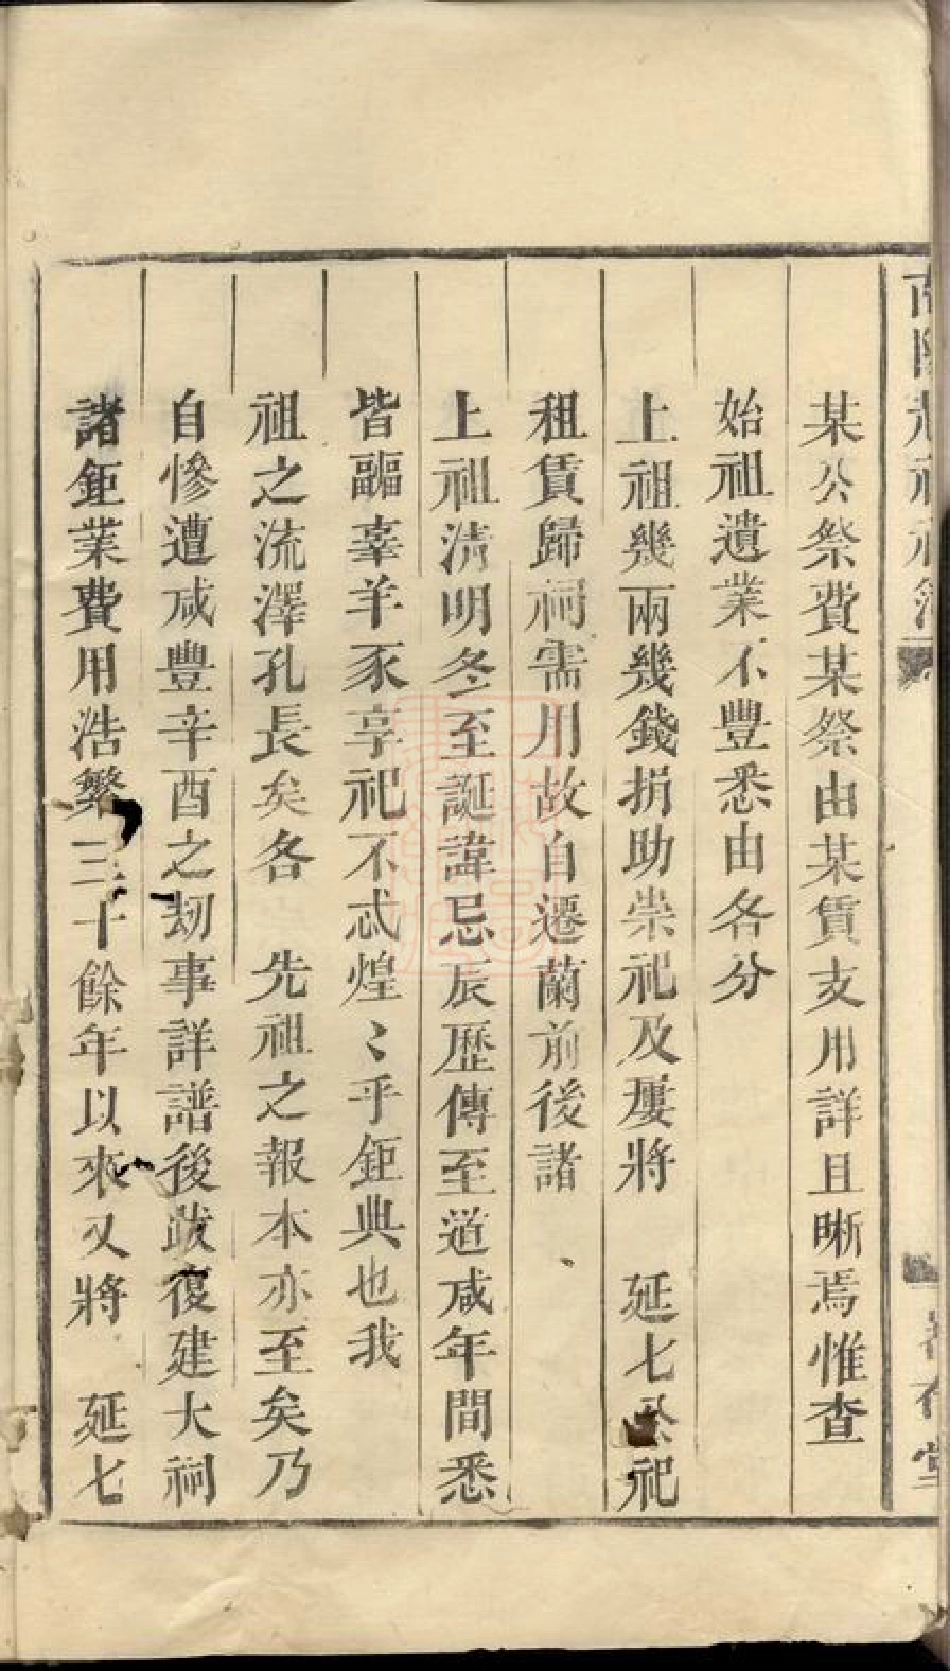 某公祭費某祭由某賃支用詳且晰焉惟查
始祖遺業不豐悉由各分
上祖幾兩幾錢捐助崇祀及屢將 延七祀
租賃歸祠需用故自遷蘭前後諸
上祖淸明冬至誕諱忌辰歷傳至道咸年間悉
皆羊豕享祀不忒煌〻乎鉅典也我
祖之流澤孔長矣各 先祖之報本亦至矣乃
自慘遭咸豐辛酉之刼事詳譜後跋復建大祠
諸鉅業費用浩繁三十餘年以來又將 延七